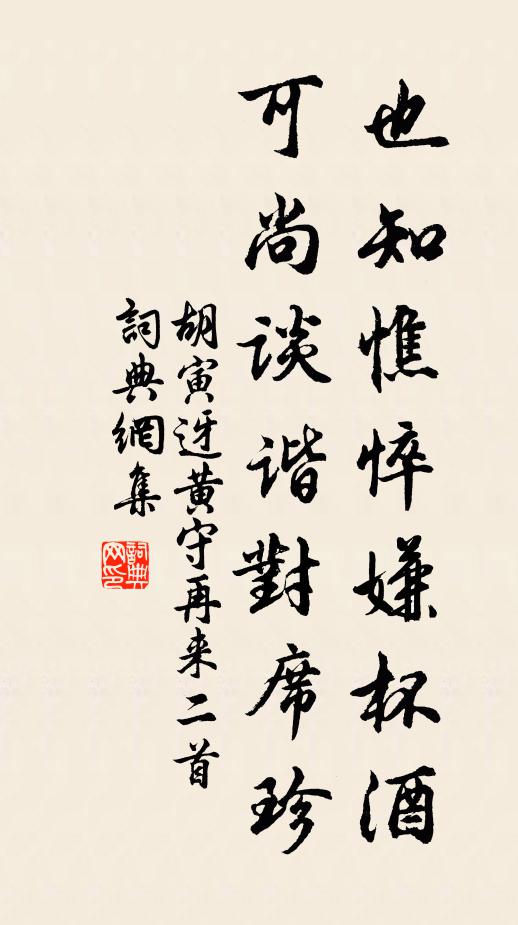 也知憔悴嫌杯酒
可尚談谐對席珍
胡寅迓黄守再来二首
詞典網集
詞典網印